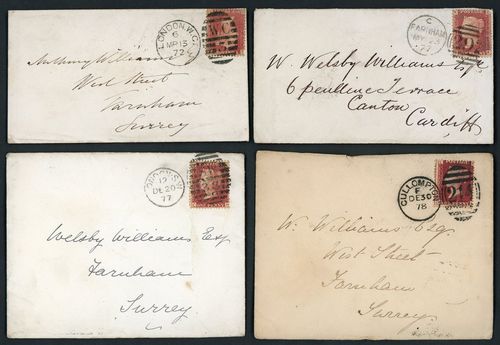 LONDON.W.C
6
MR 15
72
WC
Anthony Williams
West Street
Farnham
Surrey
C
FARNHAM
77
W. Welsby Williams Esq
6 penlline Terrace
Canton
Cardiff
LONDON.S.W
12
DE 20
77
Welsby Williams Esq
Farnham
Surrey
CULLOMPTON
F
DE 30
78
W. Williams Esq.
West Street
Farnham
Surrey